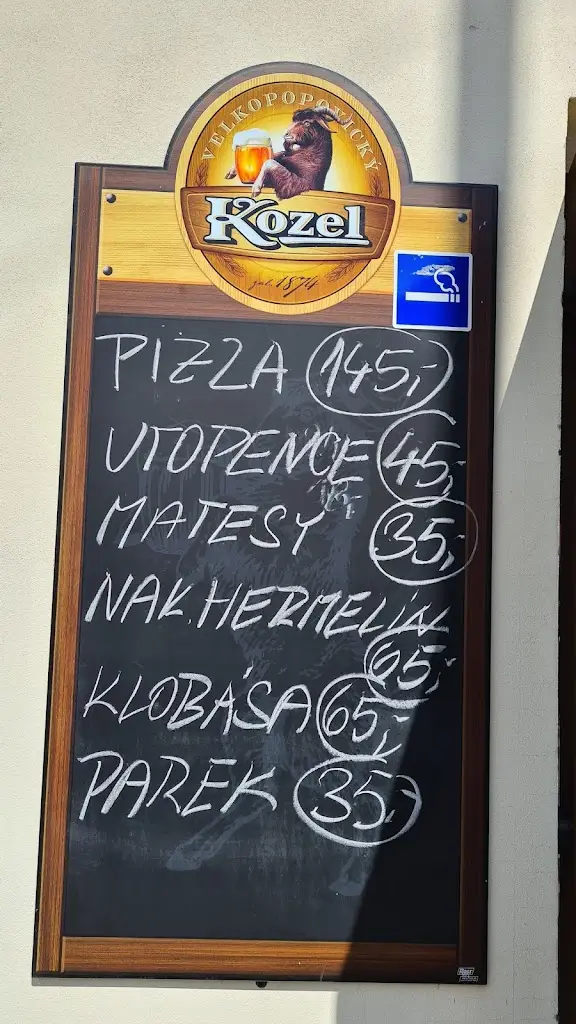 VELKOPOPOVICKÝ
Kozel
jul. 1874
PIZZA 145,-
UTOPENCE 45,-
MATESY 35,-
NAK. HERMELÍN
65,-
KLOBÁSA 65,-
PAREK 35,-